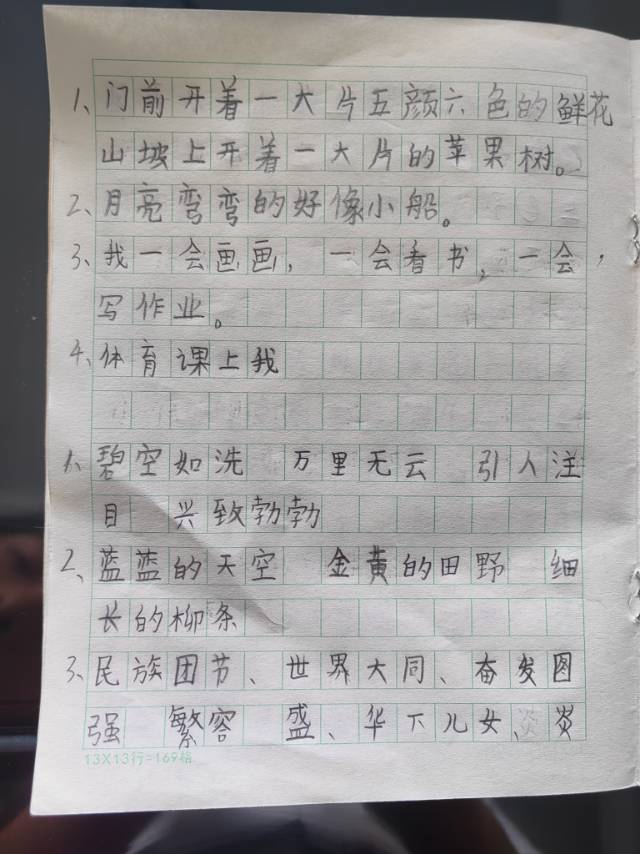 1、门前开着一大片五颜六色的鲜花
山坡上开着一大片的苹果树。
2、月亮弯弯的好像小船。
3、我一会画画,一会看书,一会,
写作业。
4、体育课上我
1、碧空如洗 万里无云 引人注
目 兴致勃勃
2、蓝蓝的天空 金黄的田野 细
长的柳条
3、民族团节、世界大同、奋发图
强 繁容 盛、华下儿女、炎
13X13行=169格